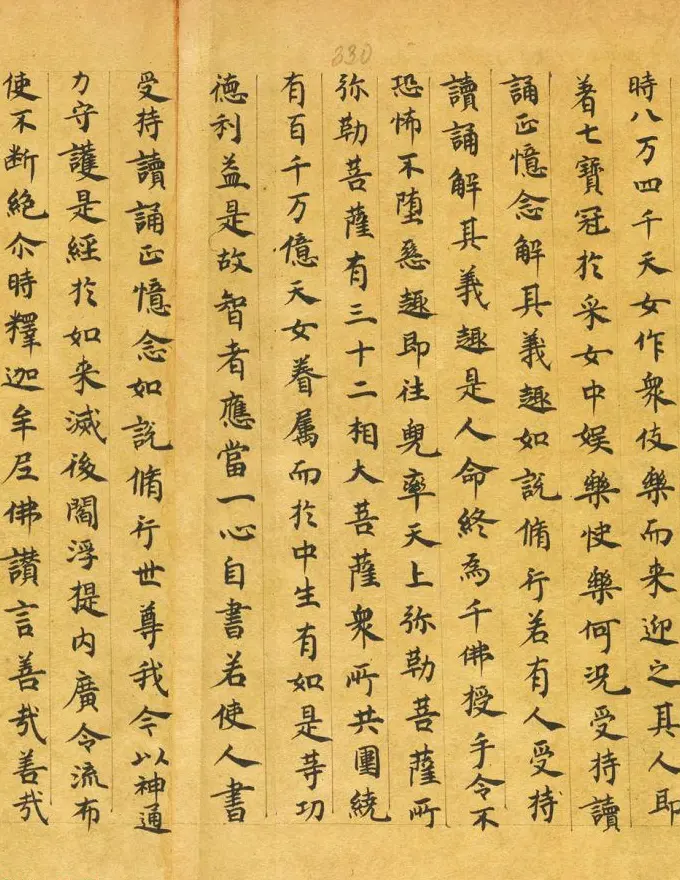 330
時八万四千天女作衆伎樂而来迎之其人即
著七寶冠於采女中娱樂快樂何况受持讀
誦正憶念解其義趣如說脩行若有人受持
讀誦解其義趣是人命終為千佛授手令不
恐怖不墮惡趣即往兜率天上弥勒菩薩所
弥勒菩薩有三十二相大菩薩衆所共圍繞
有百千万億天女眷属而於中生有如是等功
德利益是故智者應當一心自書若使人書
受持讀誦正憶念如說脩行世尊我今以神通
力守護是經於如来滅後閻浮提内廣令流布
使不断絶尒時釋迦牟尼佛讚言善哉善哉